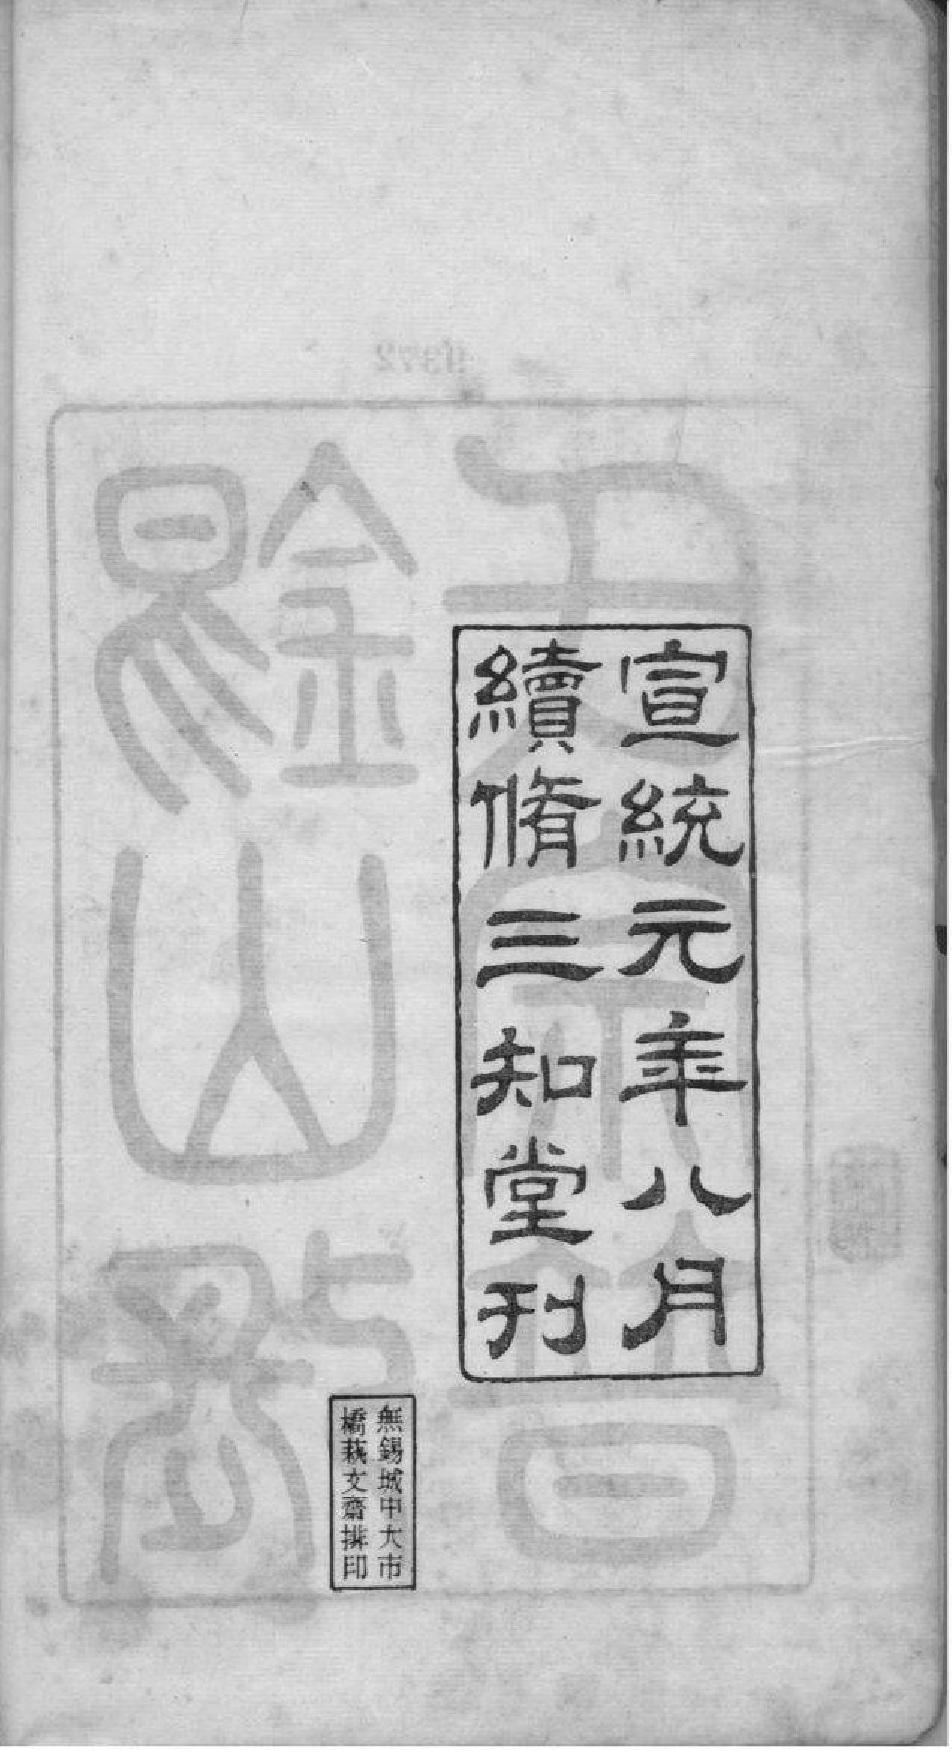 宣統元年八月
續脩三知堂刊
無錫城中大市
橋蓺文齋排印